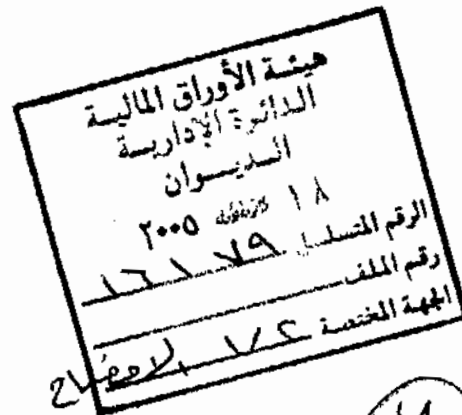 هيئة الأوراق المالية
الدائرة الإدارية
الديوان
١٨ ٢٠٠٥
الرقم المتسلسل ١٦١٧٩
رقم الملف
الجهة المختصة ١/٢ الافصاح